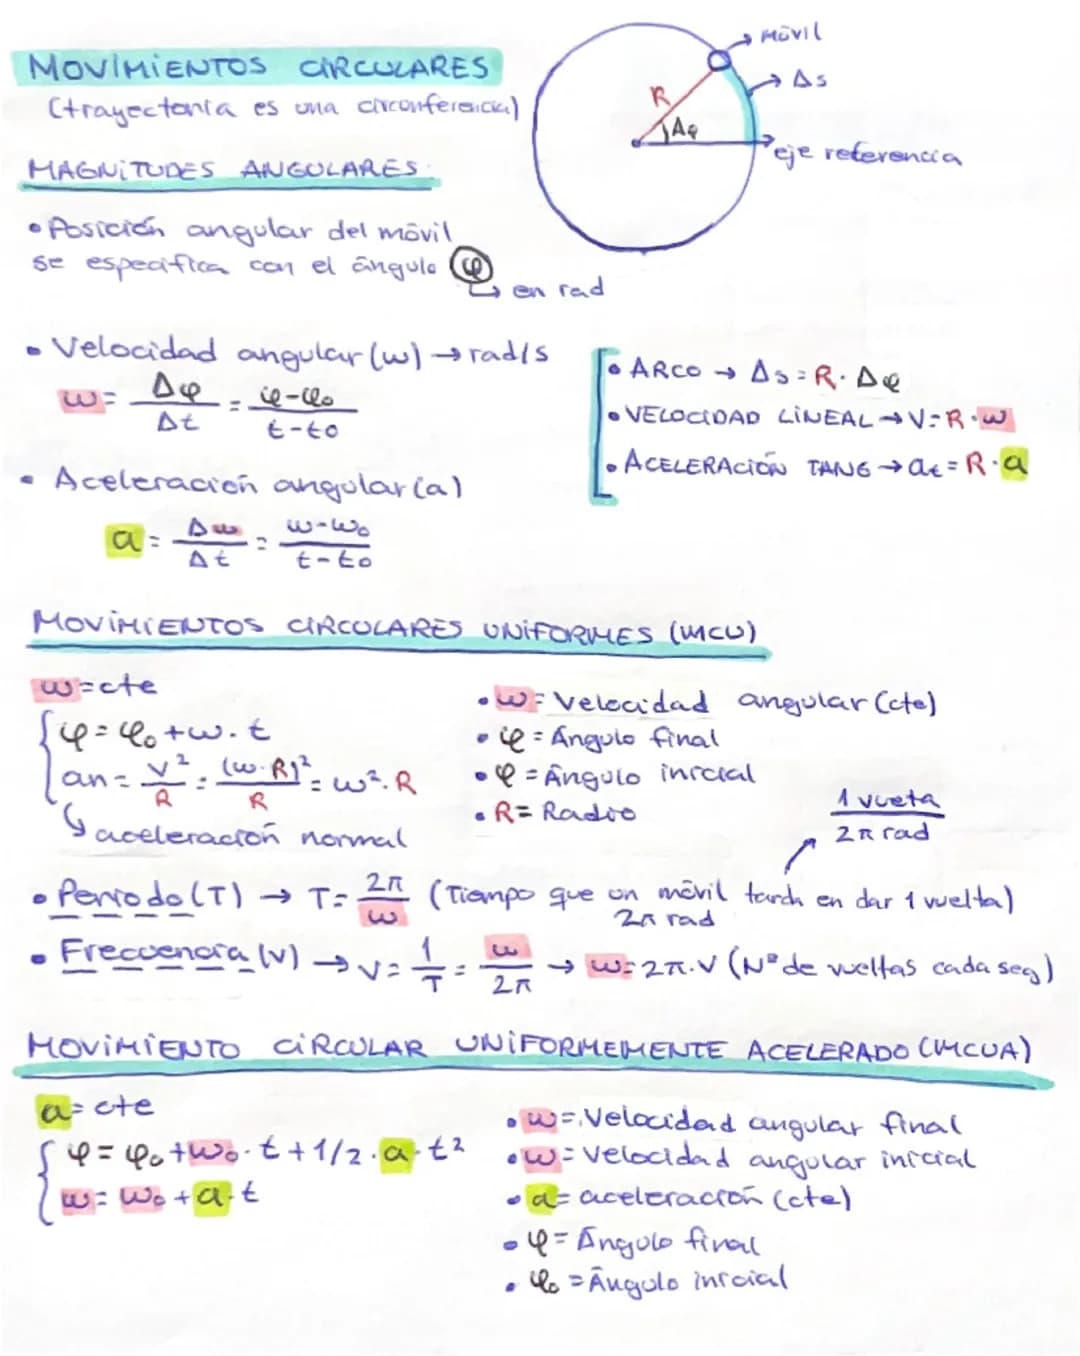 MOVIMIENTOS CIRCULARES
(trayectoria es una circonferencia)
Móvil
Δs
R
Δφ
eje referencia
MAGNITUDES ANGULARES:
• Posición angular del móvil
se especifica con el ángulo φ
en rad
• Velocidad angular (w) → rad/s
w = Δφ/Δt = φ-φ₀/t-t₀
• Aceleración angular (a)
a = Δw/Δt = w-w₀/t-t₀
• ARCO → Δs = R · Δφ
• VELOCIDAD LINEAL → V = R · w
• ACELERACIÓN TANG → at = R · a
MOVIMIENTOS CIRCULARES UNIFORMES (MCU)
w = cte
φ = φ₀ + w · t
an = V²/R = (w · R)²/R = w² · R
aceleración normal
• w = Velocidad angular (cte)
• φ = Ángulo final
• φ = Ángulo inicial
• R = Radio
1 vueta
2π rad
• Periodo (T) → T = 2π/w (Tiempo que un móvil tarda en dar 1 vuelta)
2π rad
• Frecuencia (v) → v = 1/T = w/2π → w = 2π · v (Nº de vueltas cada seg)
MOVIMIENTO CIRCULAR UNIFORMEMENTE ACELERADO (MCUA)
a = cte
φ = φ₀ + w₀ · t + 1/2 · a · t²
w = w₀ + a · t
• w = Velocidad angular final
• w = velocidad angular inicial
• a = aceleración (cte)
• φ = Ángulo final
• φ₀ = Ángulo inicial